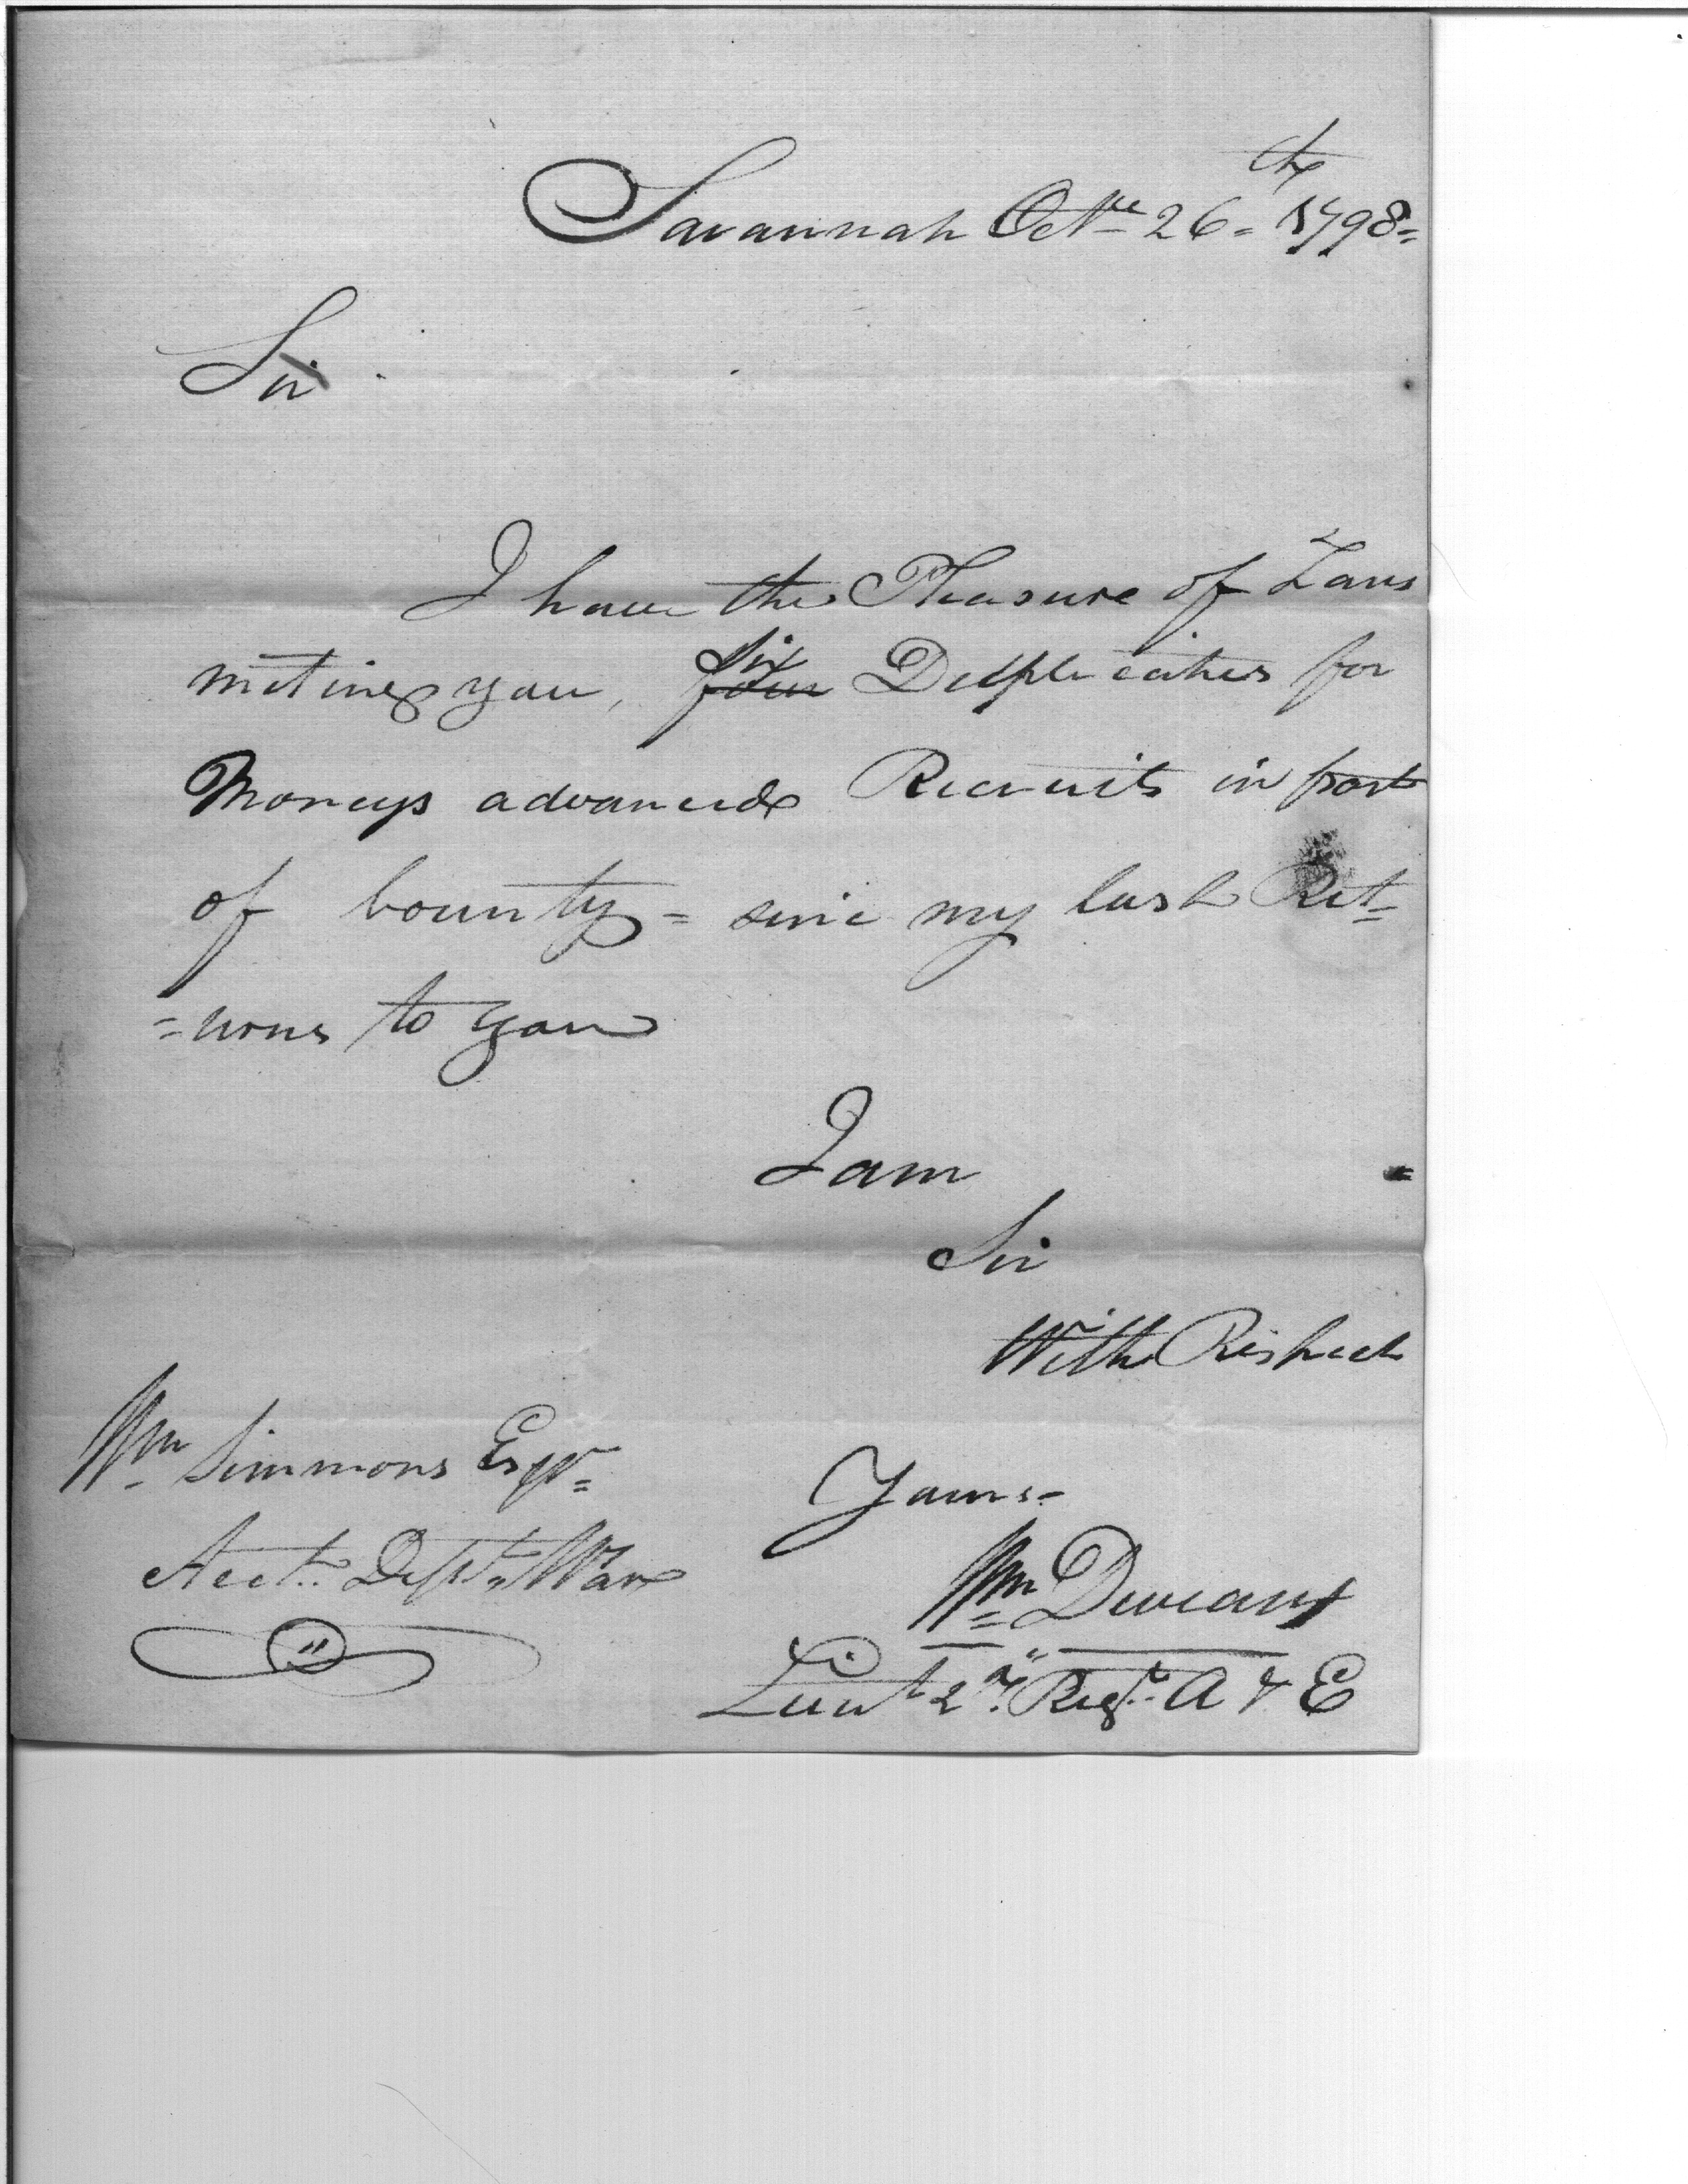 Savannah Octr 26th 1798=
Sir
I have the Pleasure of Tans
miting you, six four Duplicates for
Moneys advanced Recruits in part
of bounty = sinc my last Ret=
=urns to you
I am
Sir
With Respect
Wm Simmons Esqr=
Yours=
Acct.. Dept War
Wm
Lieut 2nd Regt.. A & E